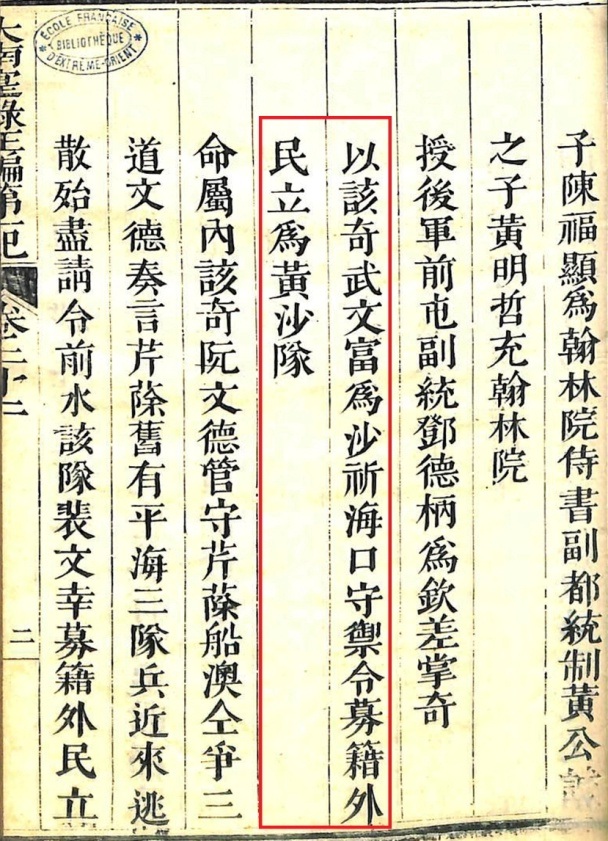 子陳福顯爲翰林院侍書副都統制黃公
之子黃明哲充翰林院
授後軍前屯副統鄧德柄爲欽差掌奇
以該奇武文富爲沙祈海口守禦令募籍外
民立爲黃沙隊
命屬內該奇阮文德管守芹蒢船澳仝爭三
道文德奏言芹蒢舊有平海三隊兵近來逃
散殆盡請令前水該隊裴文幸募籍外民立
大南寔錄正編第一紀
卷二十二
二
ÉCOLE FRANÇAISE
BIBLIOTHÈQUE
D'EXTRÊME-ORIENT